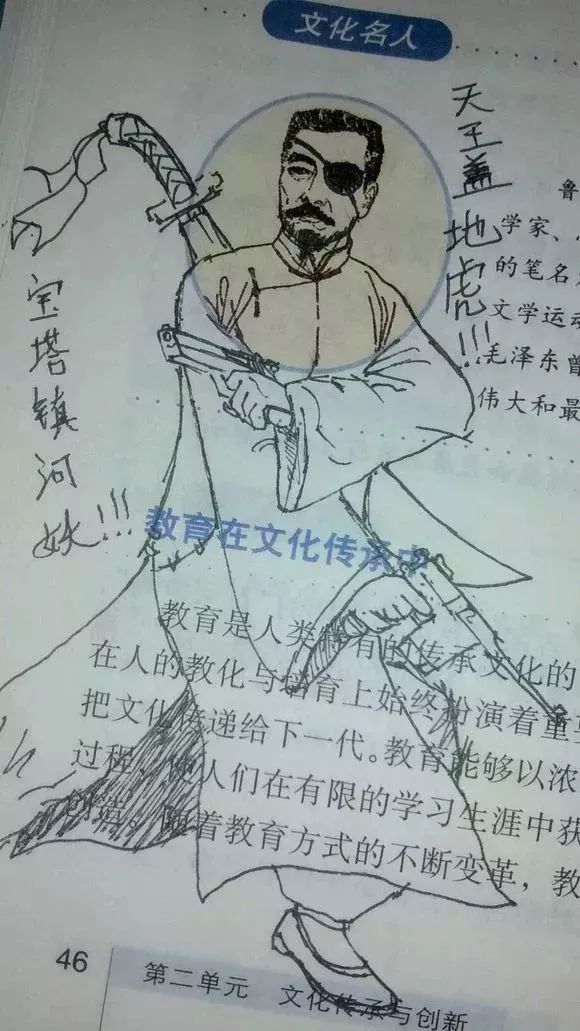 文化名人
天王盖地虎!!!
宝塔镇河妖!!!
鲁
学家、
的笔名
文学运动
毛泽东曾
伟大和最
教育在文化传承中
教育是人类特有的传承文化的
在人的教化与培育上始终扮演着重要
把文化传递给下一代。教育能够以浓
过程,使人们在有限的学习生涯中获
创造。随着教育方式的不断变革,教
46
第二单元 文化传承与创新